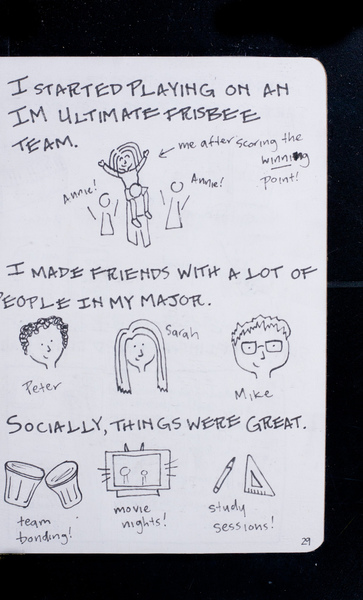 I STARTED PLAYING ON AN
IM ULTIMATE FRISBEE
TEAM.
me after scoring the
winning
point!
Annie!
Annie!
I MADE FRIENDS WITH A LOT OF
PEOPLE IN MY MAJOR.
Peter
Sarah
Mike
SOCIALLY, THINGS WERE GREAT.
team
bonding!
movie
nights!
study
sessions!
29